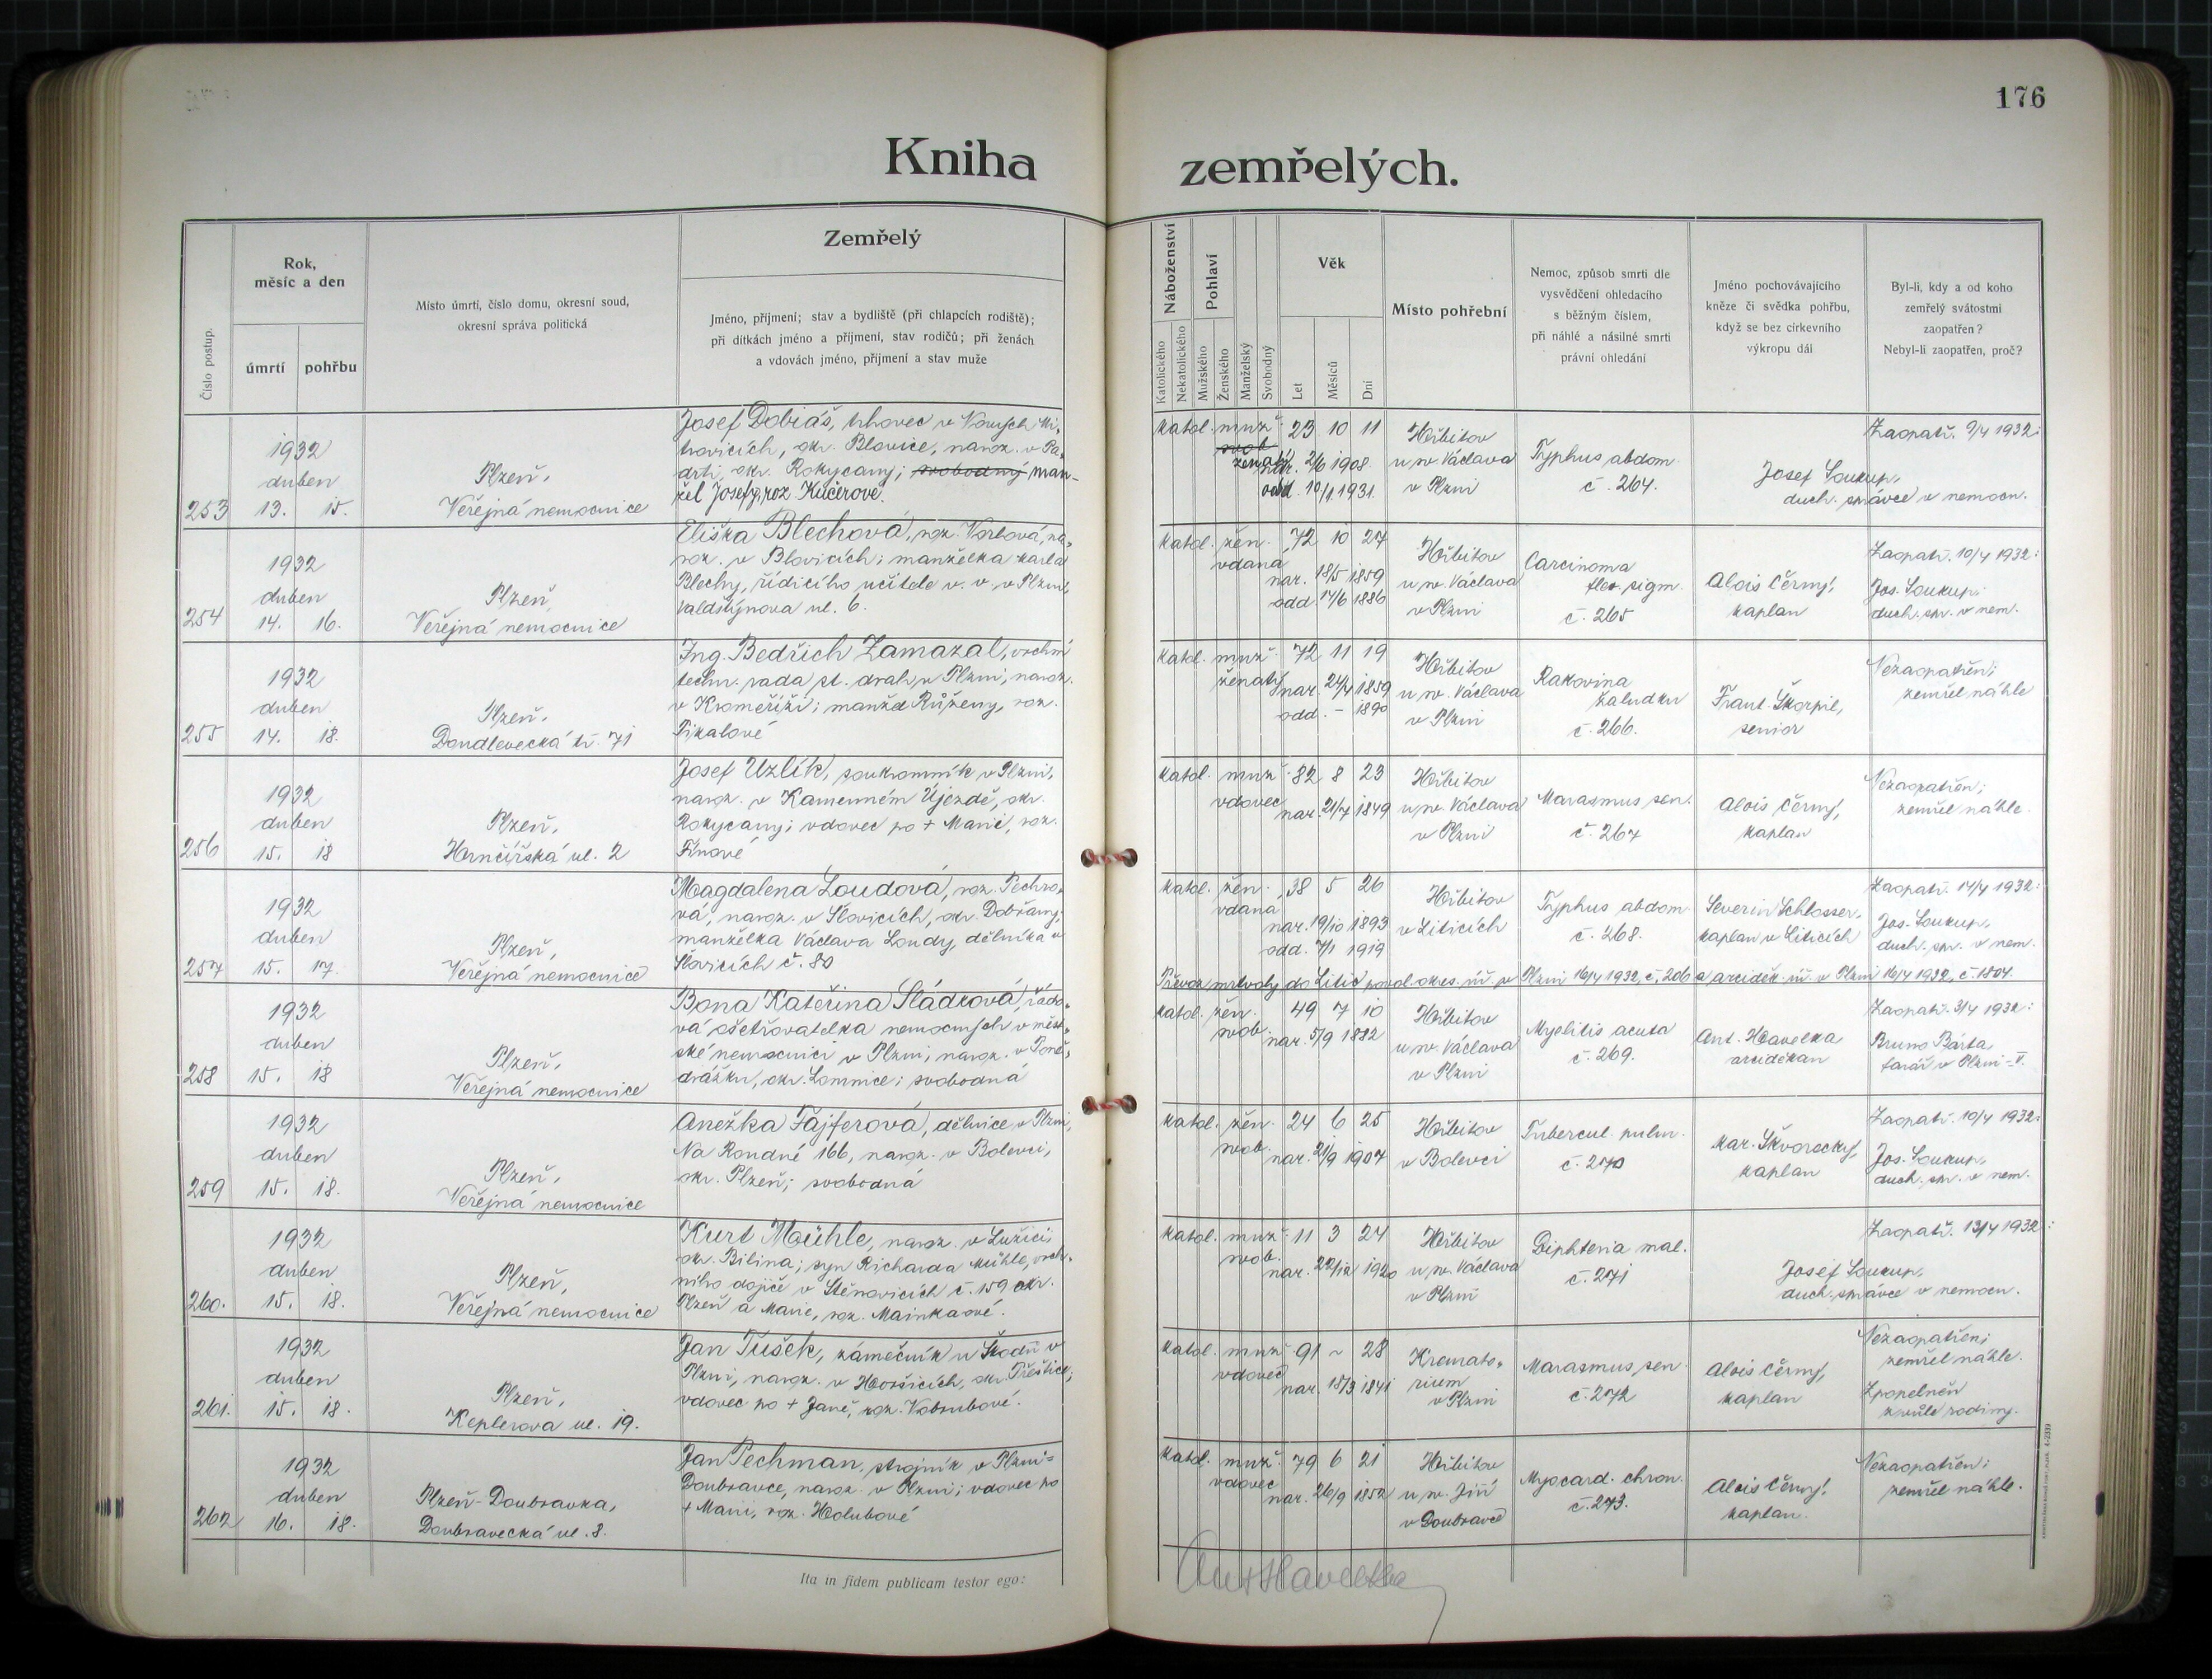 176
Kniha zemřelých.
Číslo postup.
Rok,
měsíc a den
úmrtí
pohřbu
Místo úmrtí, číslo domu, okresní soud,
okresní správa politická
Zemřelý
Jméno, příjmení; stav a bydliště (při chlapcích rodiště);
při dítkách jméno a příjmení, stav rodičů; při ženách
a vdovách jméno, příjmení a stav muže
Náboženství
Katolického
Nekatolického
Pohlaví
Mužského
Ženského
Manželský
Svobodný
Věk
Let
Měsíců
Dní
Místo pohřební
Nemoc, způsob smrti dle
vysvědčení ohledacího
s běžným číslem,
při náhlé a násilné smrti
právní ohledání
Jméno pochovávajícího
kněze či svědka pohřbu,
když se bez církevního
výkropu dál
Byl-li, kdy a od koho
zemřelý svátostmi
zaopatřen?
Nebyl-li zaopatřen, proč?
253
1932
duben
13. 15.
Plzeň,
Veřejná nemocnice
Josef Dobiáš, trhovec v Nových Mi-
trovicích, okr. Blovice, naroz. v Pa-
drti, okr. Rokycany; svobodný man-
žel Josefy, roz. Kučerové.
katol. muž. 23 10 11
svob.
ženatý
nar. 2/6 1908.
odd. 10/1 1931.
Hřbitov
u sv. Václava
v Plzni
Typhus abdom.
č. 264.
Josef Soukup,
duch. správce v nemocn.
Zaopatř. 9/4 1932:
254
1932
duben
14. 16.
Plzeň,
Veřejná nemocnice
Eliška Blechová, roz. Vorlová, na-
roz. v Blovicích; manželka Karla
Blechy, řídicího učitele v. v. v Plzni,
Valdštýnova ul. 6.
katol. žen. 72 10 27
vdaná
nar. 18/5 1859
odd. 14/6 1886
Hřbitov
u sv. Václava
v Plzni
Carcinoma
flex. sigm.
č. 265
Alois Černý,
kaplan
Zaopatř. 10/4 1932:
Jos. Soukup,
duch. spr. v nem.
255
1932
duben
14. 18.
Plzeň,
Doudlevecká tř. 71
Ing. Bedřich Zamazal, vrchní
techn. rada st. drah v Plzni, naroz.
v Kroměříži; manžel Růženy, roz.
Pikalové
katol. muž. 72 11 19
ženatý
nar. 24/4 1859
odd. - 1890
Hřbitov
u sv. Václava
v Plzni
Rakovina
žaludku
č. 266.
Frant. Škorpil,
senior
Nezaopatřen;
zemřel náhle
256
1932
duben
15. 18
Plzeň,
Hrnčířská ul. 2
Josef Uzlík, soukromník v Plzni,
naroz. v Kamenném Újezdě, okr.
Rokycany; vdovec po + Marii, roz.
Fínové
katol. muž. 82 8 23
vdovec
nar. 21/7 1849
Hřbitov
u sv. Václava
v Plzni
Marasmus sen.
č. 267
Alois Černý,
kaplan
Nezaopatřen;
zemřel náhle.
257
1932
duben
15. 17.
Plzeň,
Veřejná nemocnice
Magdalena Loudová, roz. Pechro-
vá, naroz. v Šlovicích, okr. Dobřany;
manželka Václava Loudy, dělníka v
Šlovicích č. 80
katol. žen. 38 5 26
vdaná
nar. 19/10 1893
odd. 7/1 1919
Hřbitov
v Liticích
Typhus abdom.
č. 268.
Severin Schlosser,
kaplan v Liticích
Zaopatř. 14/4 1932:
Jos. Soukup,
duch. spr. v nem.
Převoz mrtvoly do Litic povol. okres. úř. v Plzni 16/4 1932, č. 206 a arciděk. úř. v Plzni 16/4 1932, č. 1804.
258
1932
duben
15. 18
Plzeň,
Veřejná nemocnice
Bona Kateřina Sládková, řádo-
vá ošetřovatelka nemocných v měst-
ské nemocnici v Plzni, naroz. v Poně-
drážku, okr. Lomnice; svobodná
katol. žen. 49 7 10
svob.
nar. 5/9 1882
Hřbitov
u sv. Václava
v Plzni
Myelitis acuta
č. 269.
Ant. Havelka
arciděkan
Zaopatř. 3/4 1932:
Bruno Bárta
farář v Plzni-V.
259
1932
duben
15. 18.
Plzeň,
Veřejná nemocnice
Anežka Fajferová, dělnice v Plzni,
Na Roudné 166, naroz. v Bolevci,
okr. Plzeň; svobodná
katol. žen. 24 6 25
svob.
nar. 21/9 1907
Hřbitov
v Bolevci
Tubercul. pulm.
č. 270
Kar. Škvorecký,
kaplan
Zaopatř. 10/4 1932:
Jos. Soukup,
duch. spr. v nem.
260.
1932
duben
15. 18.
Plzeň,
Veřejná nemocnice
Kurt Mühle, naroz. v Lužici,
okr. Bílina; syn Richarda Mühle, vrch-
ního dojiče v Štěnovicích č. 159 okr.
Plzeň a Marie, roz. Mainkaové.
katol. muž. 11 3 24
svob.
nar. 22/12 1920
Hřbitov
u sv. Václava
v Plzni
Diphteria mal.
č. 271
Josef Soukup,
duch. správce v nemocn.
Zaopatř. 13/4 1932:
261.
1932
duben
15. 18.
Plzeň,
Keplerova ul. 19.
Jan Tušek, zámečník u Škodů v
Plzni, naroz. v Horšicích, okr. Přeštice;
vdovec po + Janě, roz. Votrubové.
katol. muž. 91 ~ 28
vdovec
nar. 18/3 1841
Kremato-
rium
v Plzni
Marasmus sen.
č. 272
Alois Černý,
kaplan
Nezaopatřen;
zemřel náhle.
Zpopelněn
z vůle rodiny.
262
1932
duben
16. 18.
Plzeň-Doubravka,
Doubravecká ul. 8.
Jan Pechman, strojník v Plzni-
Doubravce, naroz. v Plzni; vdovec po
+ Marii, roz. Holubové
katol. muž. 79 6 21
vdovec
nar. 26/9 1852
Hřbitov
u sv. Jiří
v Doubravce
Myocard. chron.
č. 273.
Alois Černý,
kaplan.
Nezaopatřen;
zemřel náhle.
Ita in fidem publicam testor ego:
Ant Havelka